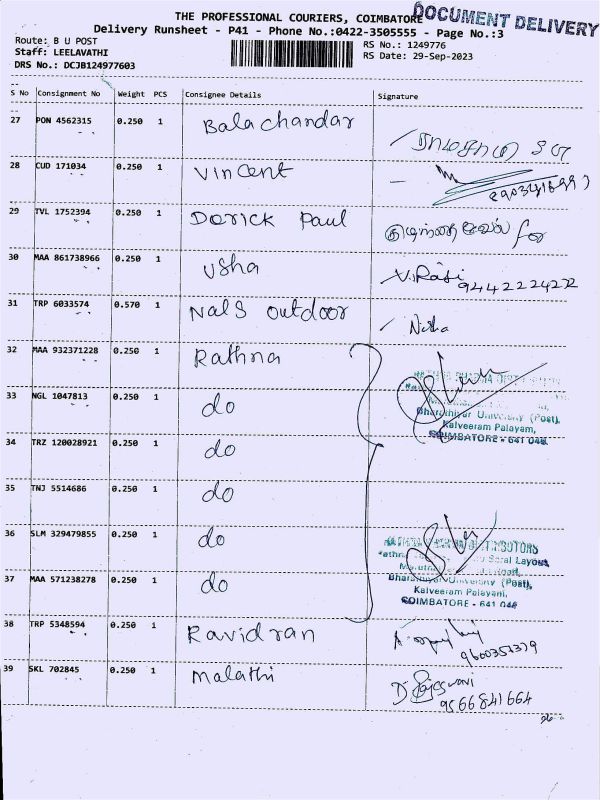 THE PROFESSIONAL COURIERS, COIMBATORE
DOCUMENT DELIVERY
Delivery Runsheet - P41 - Phone No.:0422-3505555 - Page No.:3
Route: B U POST
RS No.: 1249776
Staff: LEELAVATHI
RS Date: 29-Sep-2023
DRS No.: DCJB124977603
S No Consignment No Weight PCS Consignee Details Signature
27 PON 4562315 0.250 1 Balachandar
28 CUD 171034 0.250 1 Vincent
29 TVL 1752394 0.250 1 Derick Paul
30 MAA 861738966 0.250 1 Usha V.Rasi 9442224272
31 TRP 6033574 0.570 1 Nals outdoor Nisha
32 MAA 932371228 0.250 1 Rathna
33 NGL 1047813 0.250 1 do
Bharathiyar University (Post),
Kalveeram Palayam,
COIMBATORE - 641 046
34 TRZ 120028921 0.250 1 do
35 TNJ 5514686 0.250 1 do
36 SLM 329479855 0.250 1 do
Layout,
37 MAA 571238278 0.250 1 do
Bharathiyar University (Post),
Kalveeram Palayam,
COIMBATORE - 641 046
38 TRP 5348594 0.250 1 Ravidran
9600351379
39 SKL 702845 0.250 1 Malathi
9566841664